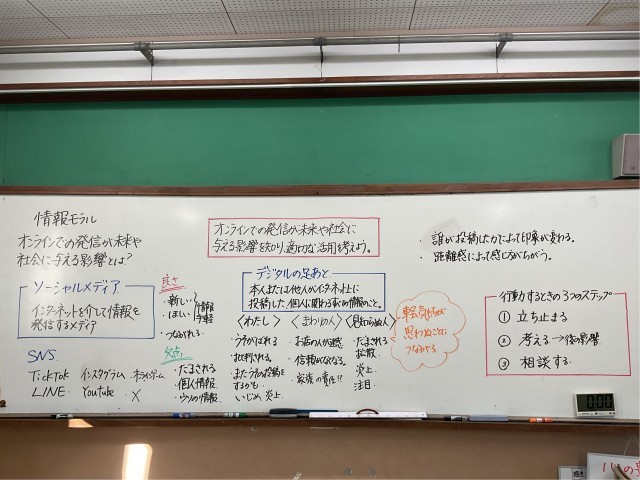 情報モラル
オンラインでの発信が未来や
社会に与える影響とは?
ソーシャルメディア
インターネットを介して情報を
発信するメディア
SNS
TickTok インスタグラム オンラインゲーム
LINE Youtube X
良さ
・新しい
・ほしい 情報
・つながれる
欠点
・だまされる
・個人情報
・ウソの情報
オンラインでの発信が未来や社会に
与える影響を知り、適切な活用を考えよう。
デジタルの足あと
本人または他人がインターネット上に
投稿した、個人に関わる情報のこと。
〈わたし〉
・うたがわれる
・批判される
・また今の投稿を
するかも
・いじめ 炎上
〈まわりの人〉
・お店の人が迷惑
・信頼がなくなる。
・家族の責任!?
〈見知らぬ人〉
・だまされる
・拡散
・炎上
・注目
軽い気持ちが
思わぬことに
つながる
・誰が投稿したかによって印象が変わる。
・距離感によって感じ方がちがう。
行動するときの3つのステップ
① 立ち止まる
② 考える→後の影響
③ 相談する